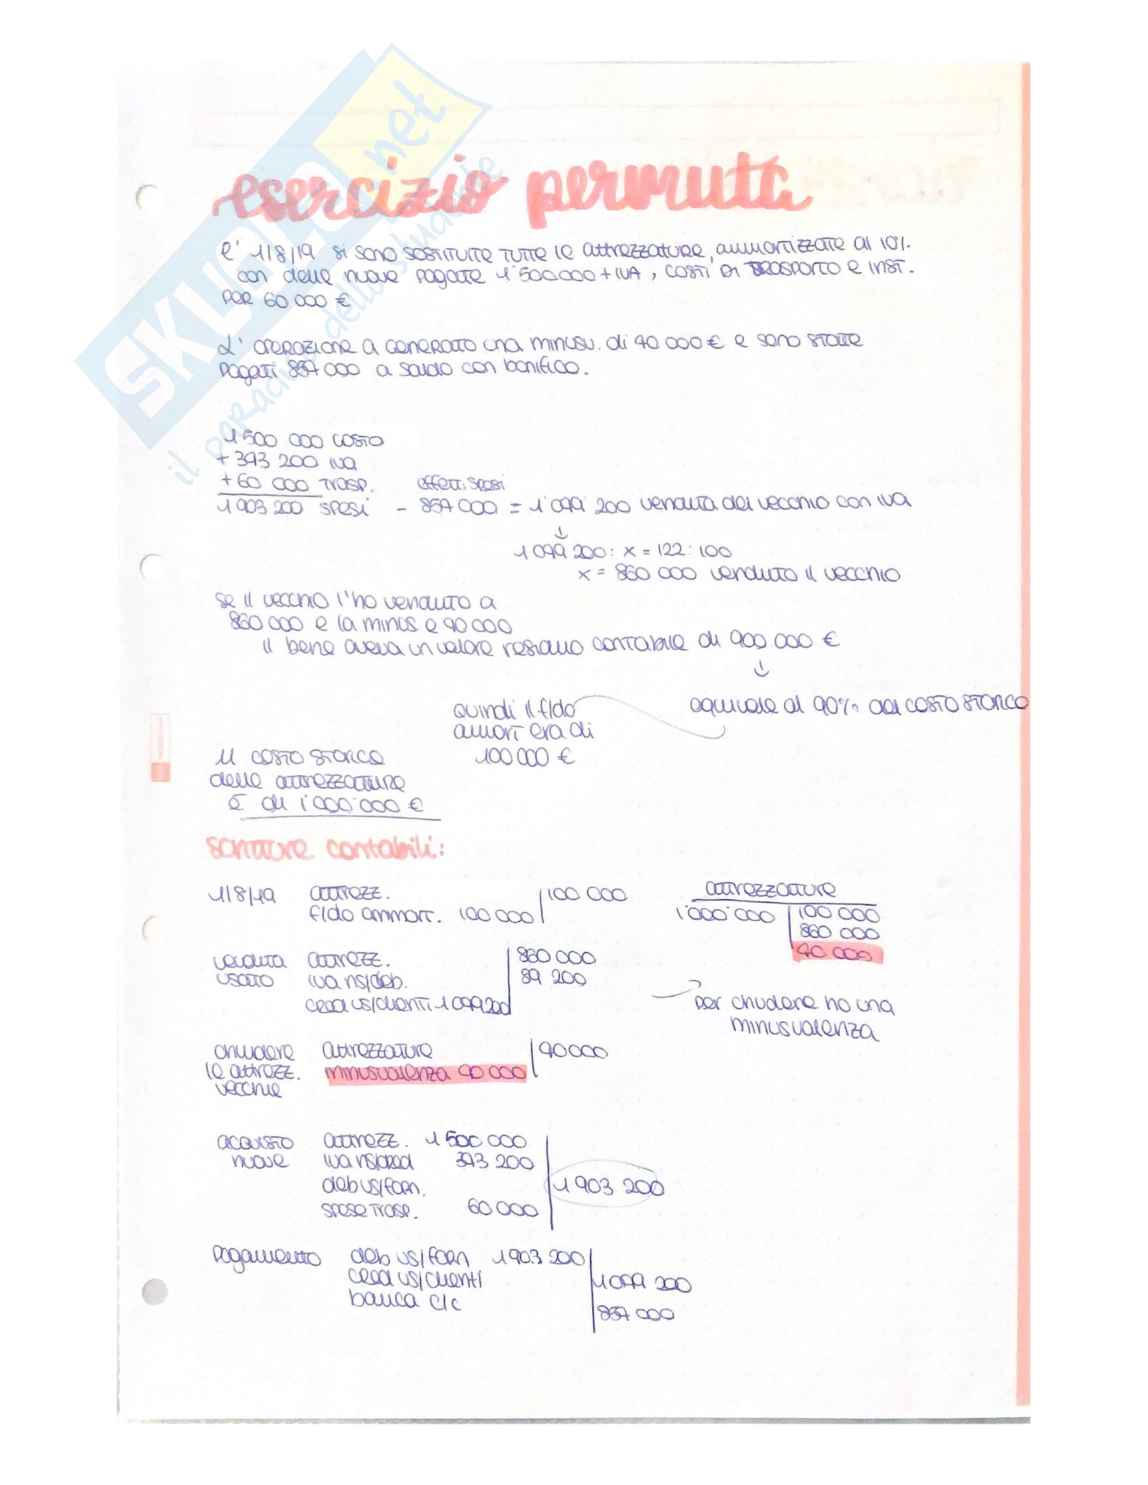 SKUOLA.net
il paradiso dello studente
esercizio permuta
l' 1/8/19 si sono sostituite tutte le attrezzature, ammortizzate al 10%
con delle nuove pagate 1'500000 + IVA, costi di trasporto e inst.
per 60 000 €
L' operazione a generato una minusv. di 40 000 € e sono state
pagati 854 000 a saldo con bonifico.
1 500 000 costo
+ 343 200 iva
+ 60 000 trasp.
effett. spesi
1 903 200 spesi - 854 000 = 1'049 200 vendita del vecchio con iva
↓
1 049 200 : x = 122 : 100
x = 860 000 venduto il vecchio
se il vecchio l'ho venduto a
860 000 e la minus e 40 000
il bene aveva un valore residuo contabile di 900 000 €
↓
equivale al 90% del costo storico
quindi il f.do
amort era di
100 000 €
Il costo storico
delle attrezzature
è di 1'000'000 €
scritture contabili:
1/8/19 attrezz. 100 000
f.do ammort. 100 000
attrezzature
1'000'000 100 000
860 000
40 000
vendita attrezz. 860 000
usato iva ns/deb. 189 200
cred vs/clienti 1 049 200
per chiudere ho una
minusvalenza
chiudere attrezzature 40000
le attrezz. minusvalenza 40 000
vecchie
acquisto attrezz. 1 500 000
nuove iva ns/cred 343 200
deb vs/forn. 1 903 200
spese trasp. 60 000
pagamento deb vs/forn 1 903 200
cred vs/clienti 1 049 200
banca c/c 854 000